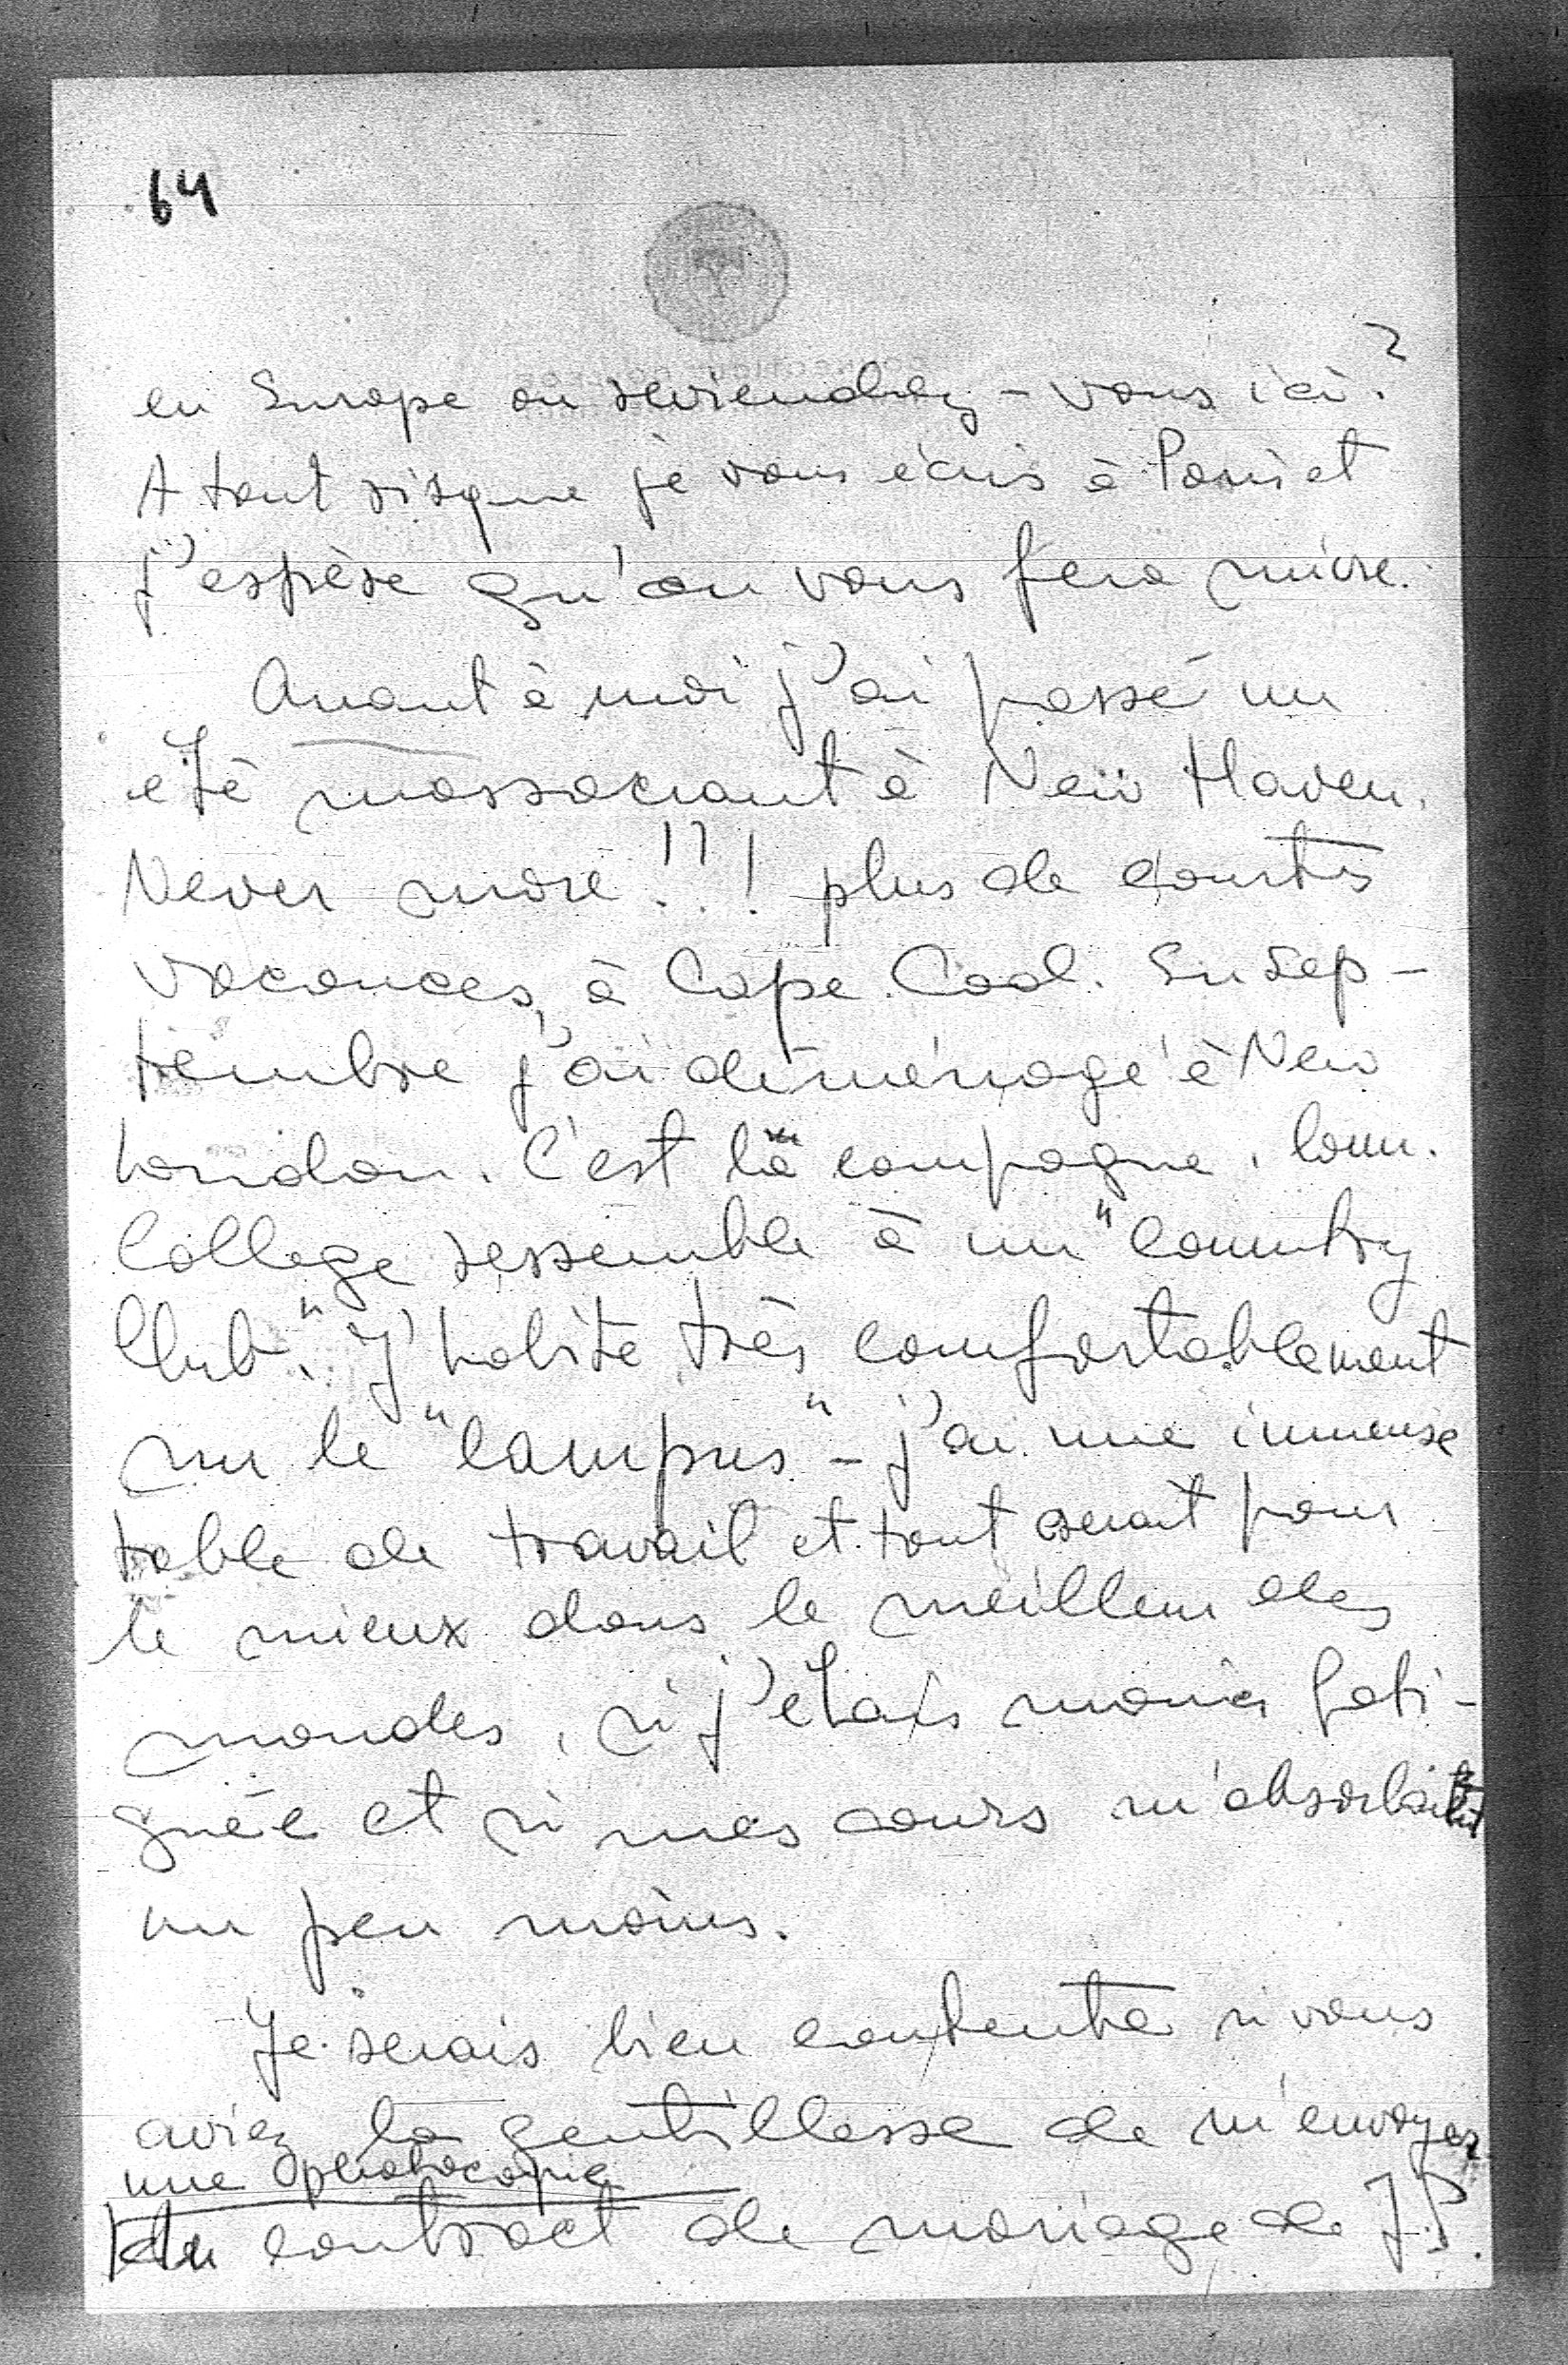 64
en Europe ou reviendrez-vous ici?
A tout risque je vous écris à Paris et
j'espère qu'on vous fera suivre.
Quant à moi j'ai passé un
été massacrant à New Haven.
Never more!!! plus de courtes
vacances, à Cape Cod. En sep-
tembre j'ai déménagé à New
London. C'est la campagne. Conn.
College ressemble à un "Country
Club". J'habite très comfortablement
sur le "Campus" - j'ai une immense
table de travail et tout serait pour
le mieux dans le meilleur des
mondes, si j'étais moins fati-
guée et si mes cours m'absorbaient
un peu moins.
Je serais bien contente si vous
aviez la gentillesse de m'envoyer
une photocopie
du contract de mariage de J.P.